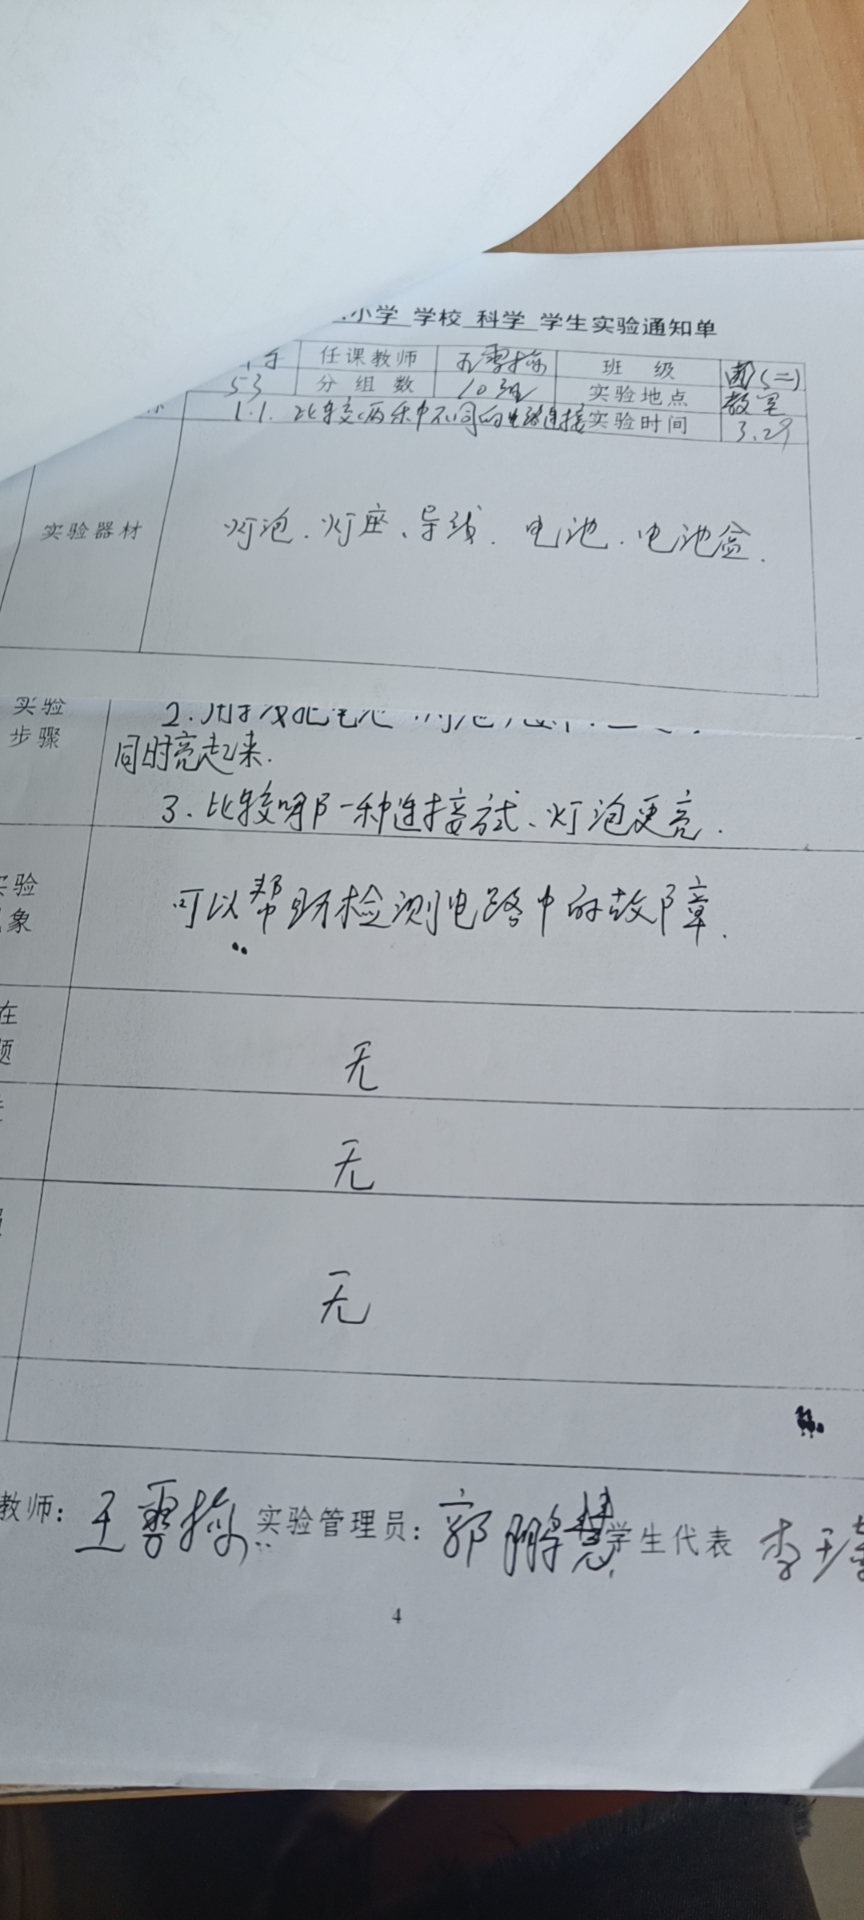 小学 学校 科学 学生实验通知单
任课教师 王雪梅 班 级 四(二)
53 分 组 数 10组 实验地点 教室
1.1. 比较两种不同的电路连接 实验时间 3.29
实验器材 灯泡、灯座、导线、电池、电池盒.
实验
步骤
同时亮起来.
3.比较哪一种连接方式、灯泡更亮.
实验
象
可以帮助检测电路中的故障.
在
题
无
无
无
教师: 王雪梅 实验管理员: 郭鹏慧 学生代表 李
4